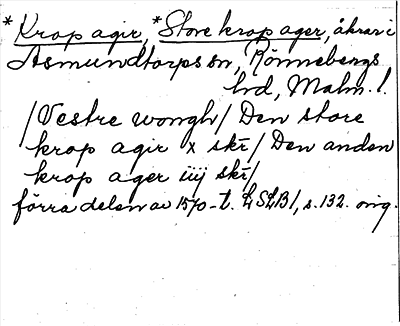 *Krop agir, *Store krop ager, åkrar i
Asmundtorps sn, Rönnebergs
hd, Malm. l.
/Vestre wongh/ Den store
krop agir x skr̄/ Den anden
krop ager iiij skr̄/
förra delen av 1570-t. LSLB1, s. 132. orig.